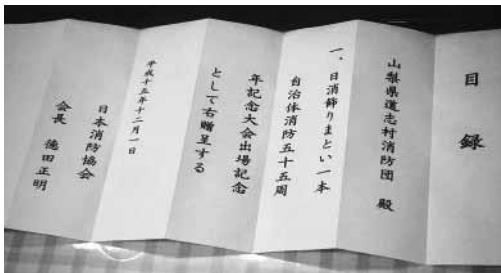 目録
山梨県道志村消防団 殿
一、日消飾りまとい一本
自治体消防五十五周
年記念大会出場記念
として右贈呈する
平成十五年十二月一日
日本消防協会
会長 徳田正明